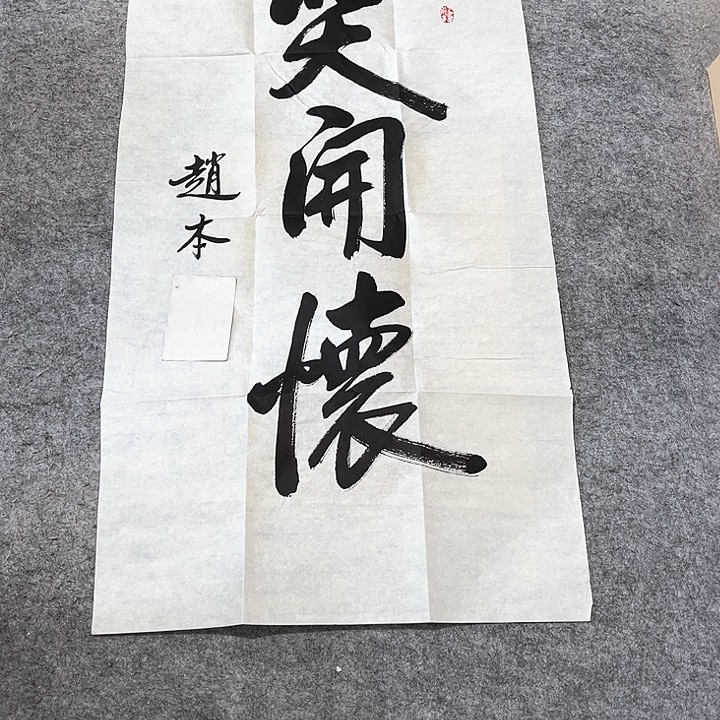 笑開懷
趙本